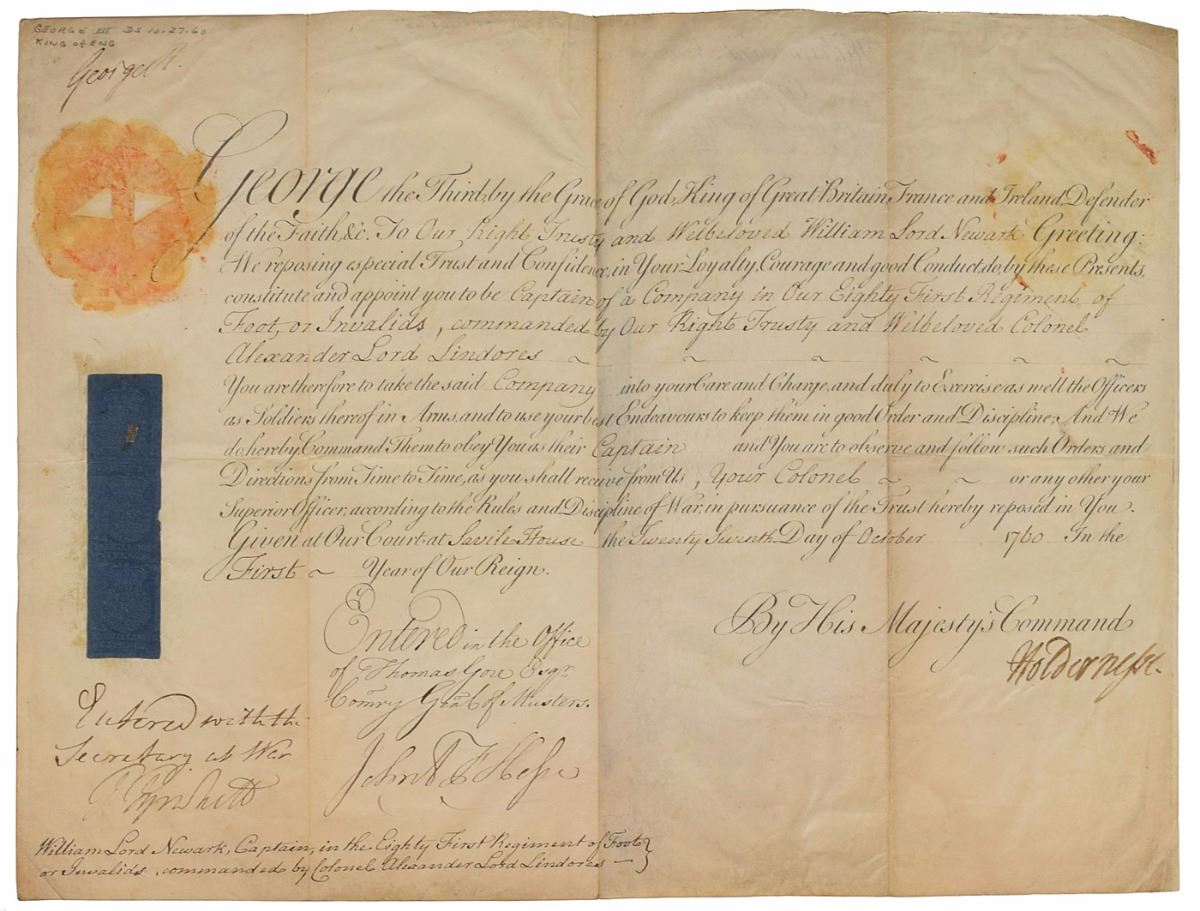 GEORGE III DS 10.27.60
KING of ENG
George R.
George the Third, by the Grace of God, King of Great Britain, France and Ireland, Defender
of the Faith, &c. To Our Right Trusty and Welbeloved William Lord Newark Greeting:
We reposing especial Trust and Confidence, in Your Loyalty, Courage and good Conduct, do, by these Presents,
constitute and appoint you to be Captain of a Company in Our Eighty First Regiment of
Foot, or Invalids, commanded by Our Right Trusty and Welbeloved Colonel
Alexander Lord Lindores ~ ~ ~ ~ ~ ~
You are therefore to take the said Company into your Care and Charge, and duly to Exercise as well the Officers
as Soldiers thereof in Arms, and to use your best Endeavours to keep them in good Order and Discipline; And We
do hereby Command Them to obey You as their Captain and You are to observe and follow such Orders and
Directions from Time to Time, as you shall receive from Us, Your Colonel ~ ~ or any other your
Superior Officer, according to the Rules and Discipline of War, in pursuance of the Trust hereby reposed in You.
Given at Our Court at Savile House the Twenty Seventh Day of October 1760 In the
First ~ Year of Our Reign.
By His Majesty's Command
Holdernesse.
Entered in the Office
of Thomas Gore Esqr.
Comry Genl. of Musters.
John
Entered with the
Secretary at War
William Lord Newark, Captain, in the Eighty First Regiment of Foot
or Invalids, commanded by Colonel Alexander Lord Lindores —